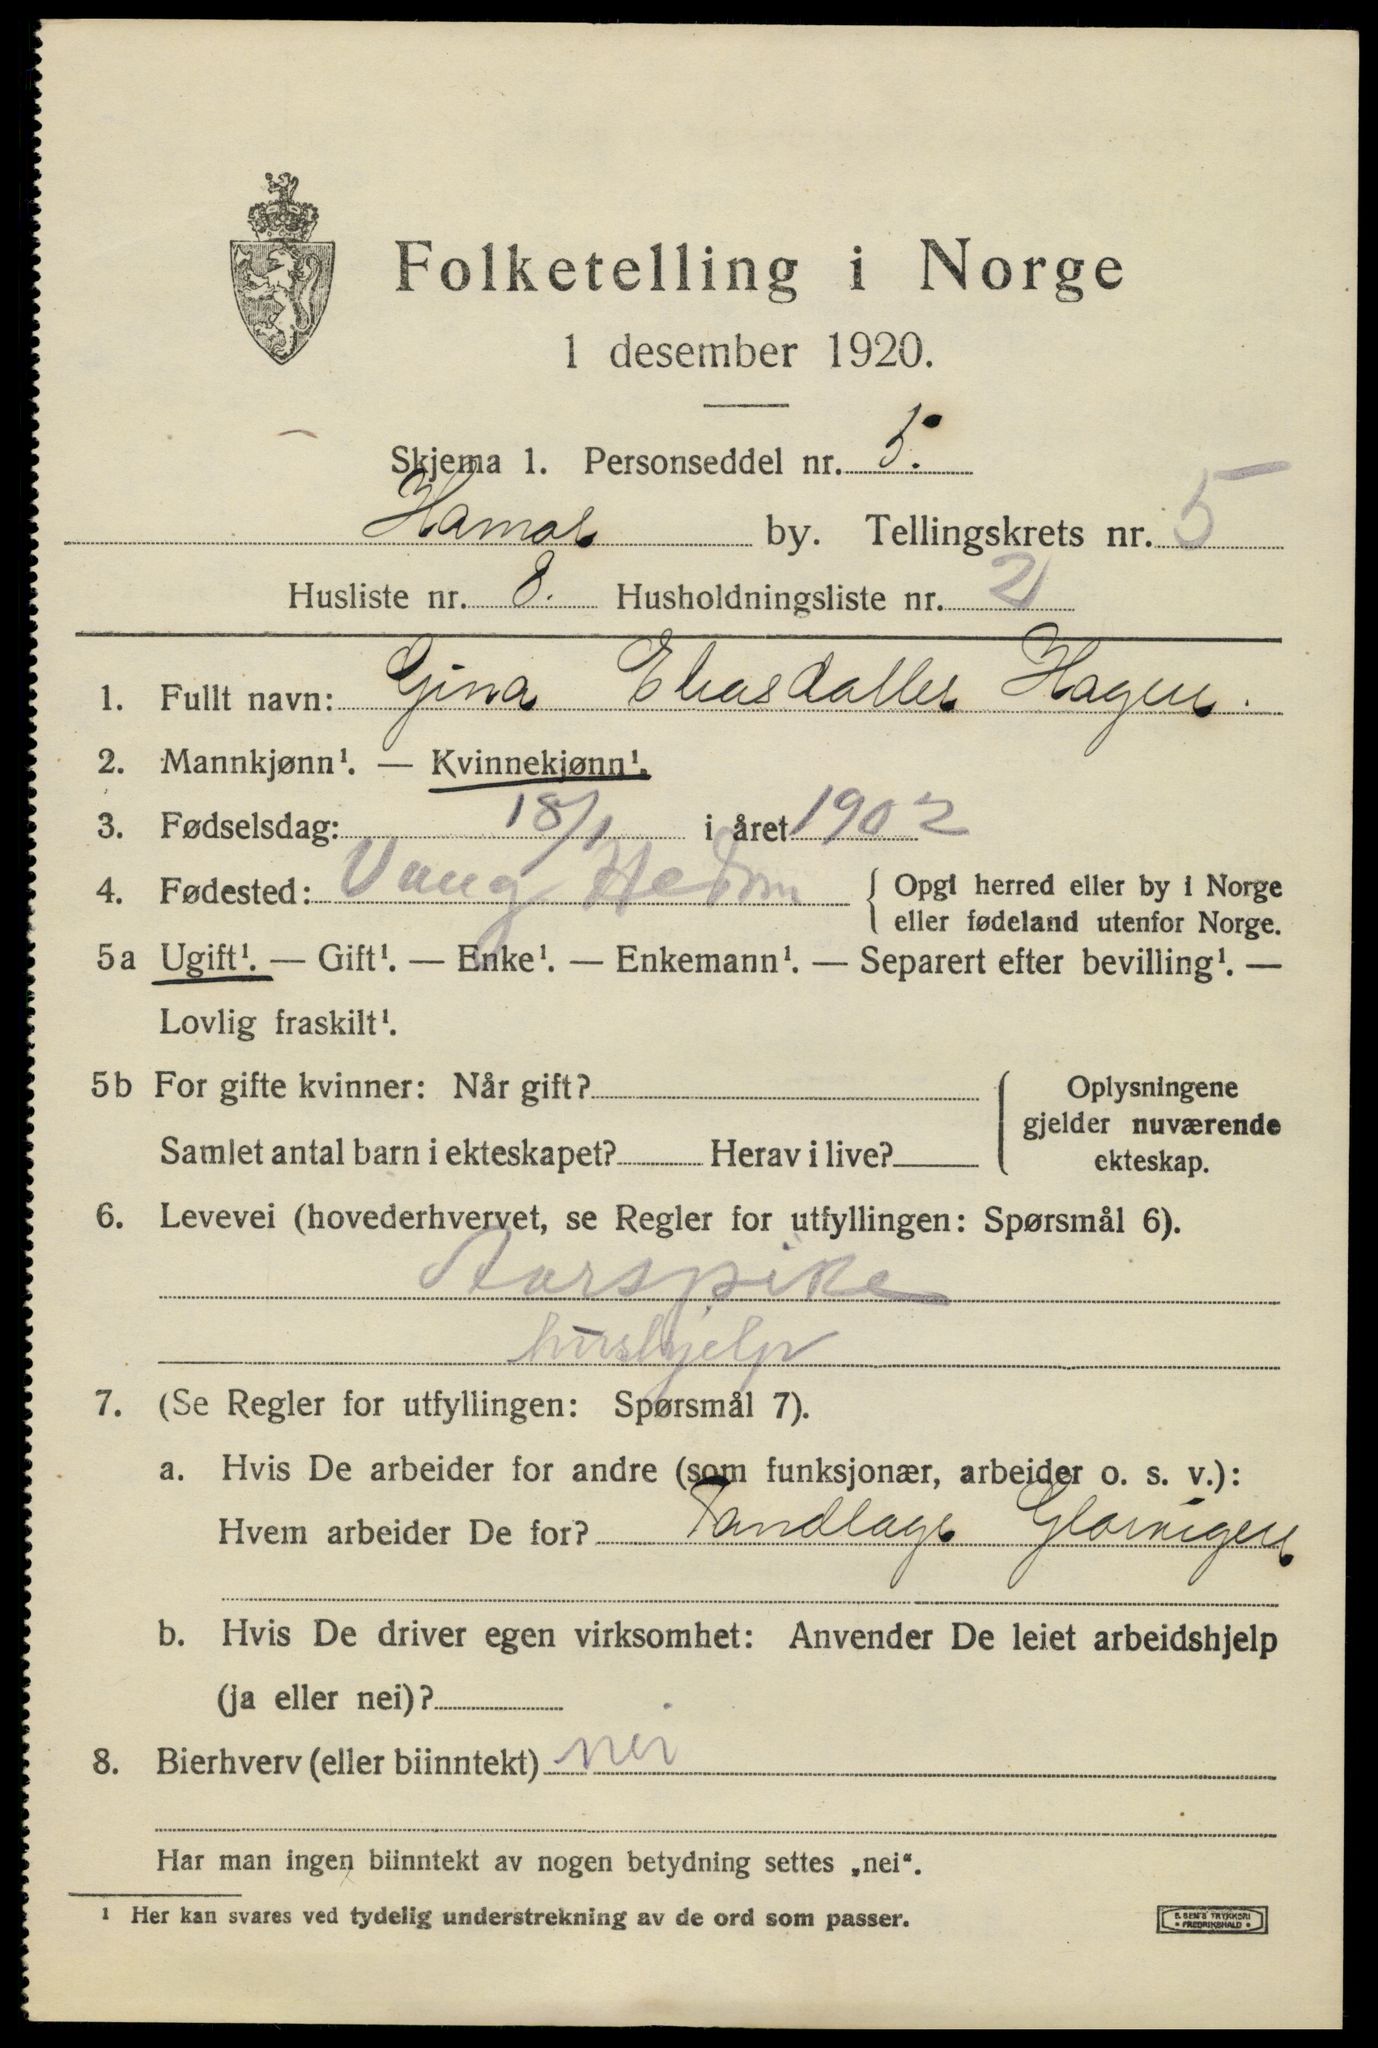 Folketelling i Norge
1 desember 1920.
Skjema 1. Personseddel nr. 5.
Hamar by. Tellingskrets nr. 5
Husliste nr. 8. Husholdningsliste nr. 2
1. Fullt navn: Gina Hagen.
2. Mannkjønn¹. — Kvinnekjønn¹.
3. Fødselsdag: 18/1 i året 1902
4. Fødested: Vang Hedm { Opgi herred eller by i Norge
eller fødeland utenfor Norge.
5a Ugift¹. — Gift¹. — Enke¹. — Enkemann¹. — Separert efter bevilling¹. —
Lovlig fraskilt¹.
5b For gifte kvinner: Når gift?
Samlet antal barn i ekteskapet? Herav i live?
Oplysningene
gjelder nuværende
ekteskap.
6. Levevei (hovederhvervet, se Regler for utfyllingen: Spørsmål 6).
Aarspike
hushjelp
7. (Se Regler for utfyllingen: Spørsmål 7).
a. Hvis De arbeider for andre (som funksjonær, arbeider o. s. v.):
Hvem arbeider De for? Tandlage
b. Hvis De driver egen virksomhet: Anvender De leiet arbeidshjelp
(ja eller nei)?
8. Bierhverv (eller biinntekt) nei
Har man ingen biinntekt av nogen betydning settes „nei“.
¹ Her kan svares ved tydelig understrekning av de ord som passer.
E. SEM'S TRYKKERI
• FREDRIKSHALD •